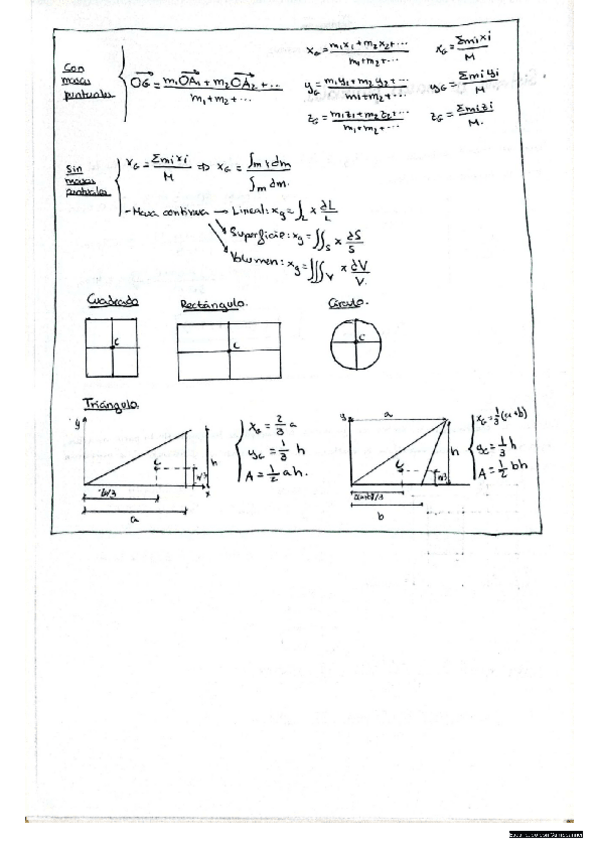 Con masas puntuales
OG = m₁OA₁ + m₂OA₂ + ... / m₁ + m₂ + ...
x_G = m₁x₁ + m₂x₂ + ... / m₁ + m₂ + ...
x_G = Σmixi / M
y_G = m₁y₁ + m₂y₂ + ... / m₁ + m₂ + ...
y_G = Σmiyi / M
z_G = m₁z₁ + m₂z₂ + ... / m₁ + m₂ + ...
z_G = Σmizi / M.
Sin masas puntuales
x_G = Σmi ri / M ⇒ x_G = ∫m r dm / ∫m dm.
- Masa continua → Lineal: x_g = ∫_L x ∂L / L
Superficie: x_g = ∬_S x ∂S / S
Volumen: x_g = ∭_V x ∂V / V.
Cuadrado
Rectángulo.
Círculo.
C
C
C
Triángulo.
y
C
h
h/3
x
a
x_G = 2/3 a
y_G = 1/3 h
A = 1/2 ah.
y
a
C
h
h/3
(a+b)/3
b
x_G = 1/3 (a+b)
y_G = 1/3 h
A = 1/2 bh